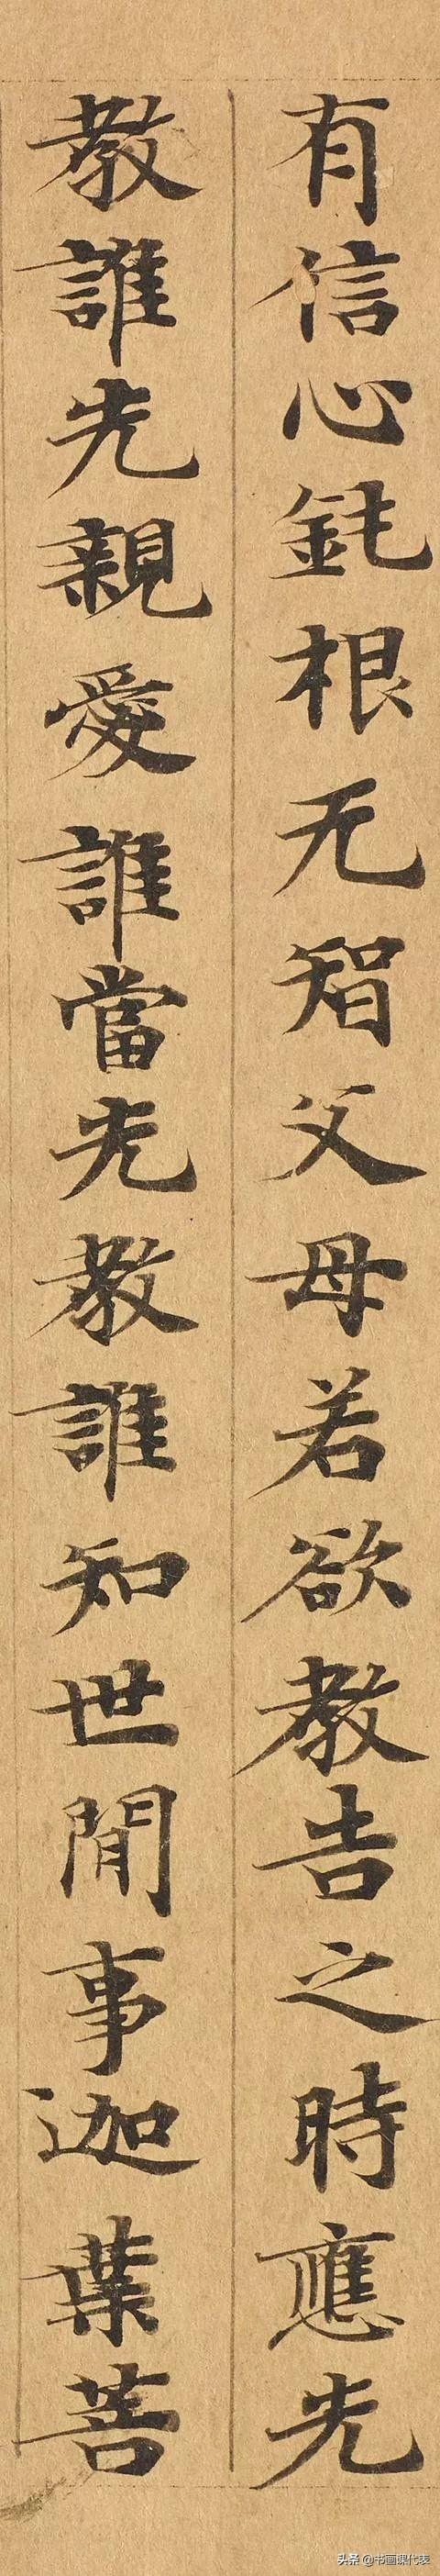 有信心鈍根无智父母若欲教告之時應先
教誰先親愛誰當先教誰知世閒事迦葉菩
头条 @书画课代表